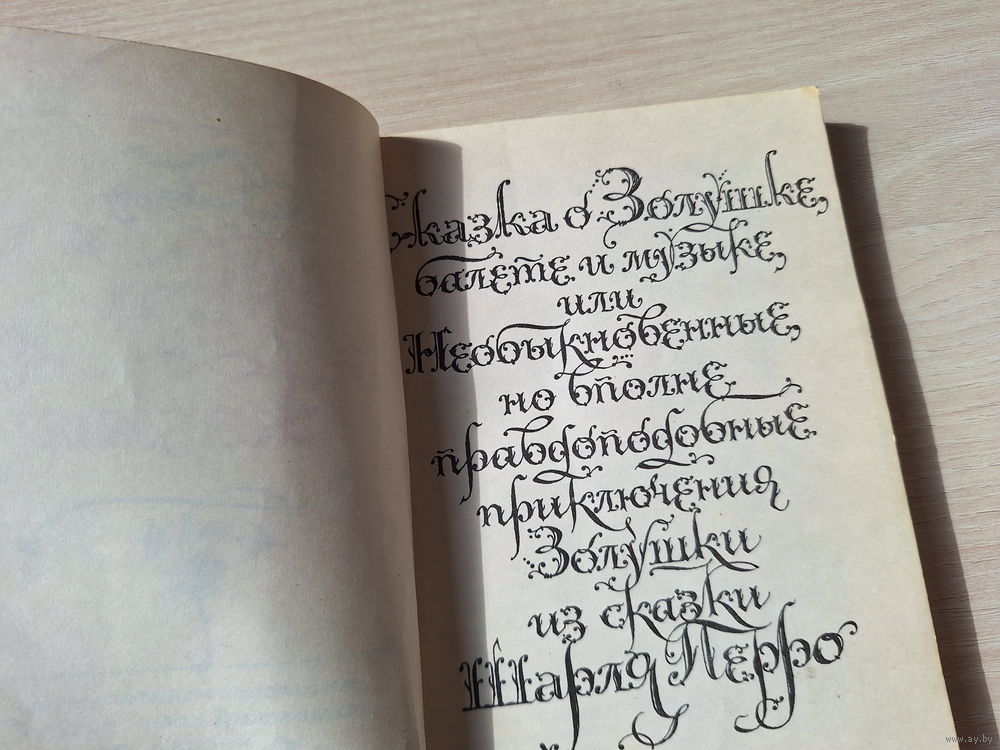 Сказка о Золушке,
балете и музыке,
или
Необыкновенные,
но вполне
правдоподобные
приключения
Золушки
из сказки
Шарля Перро
www.ay.by